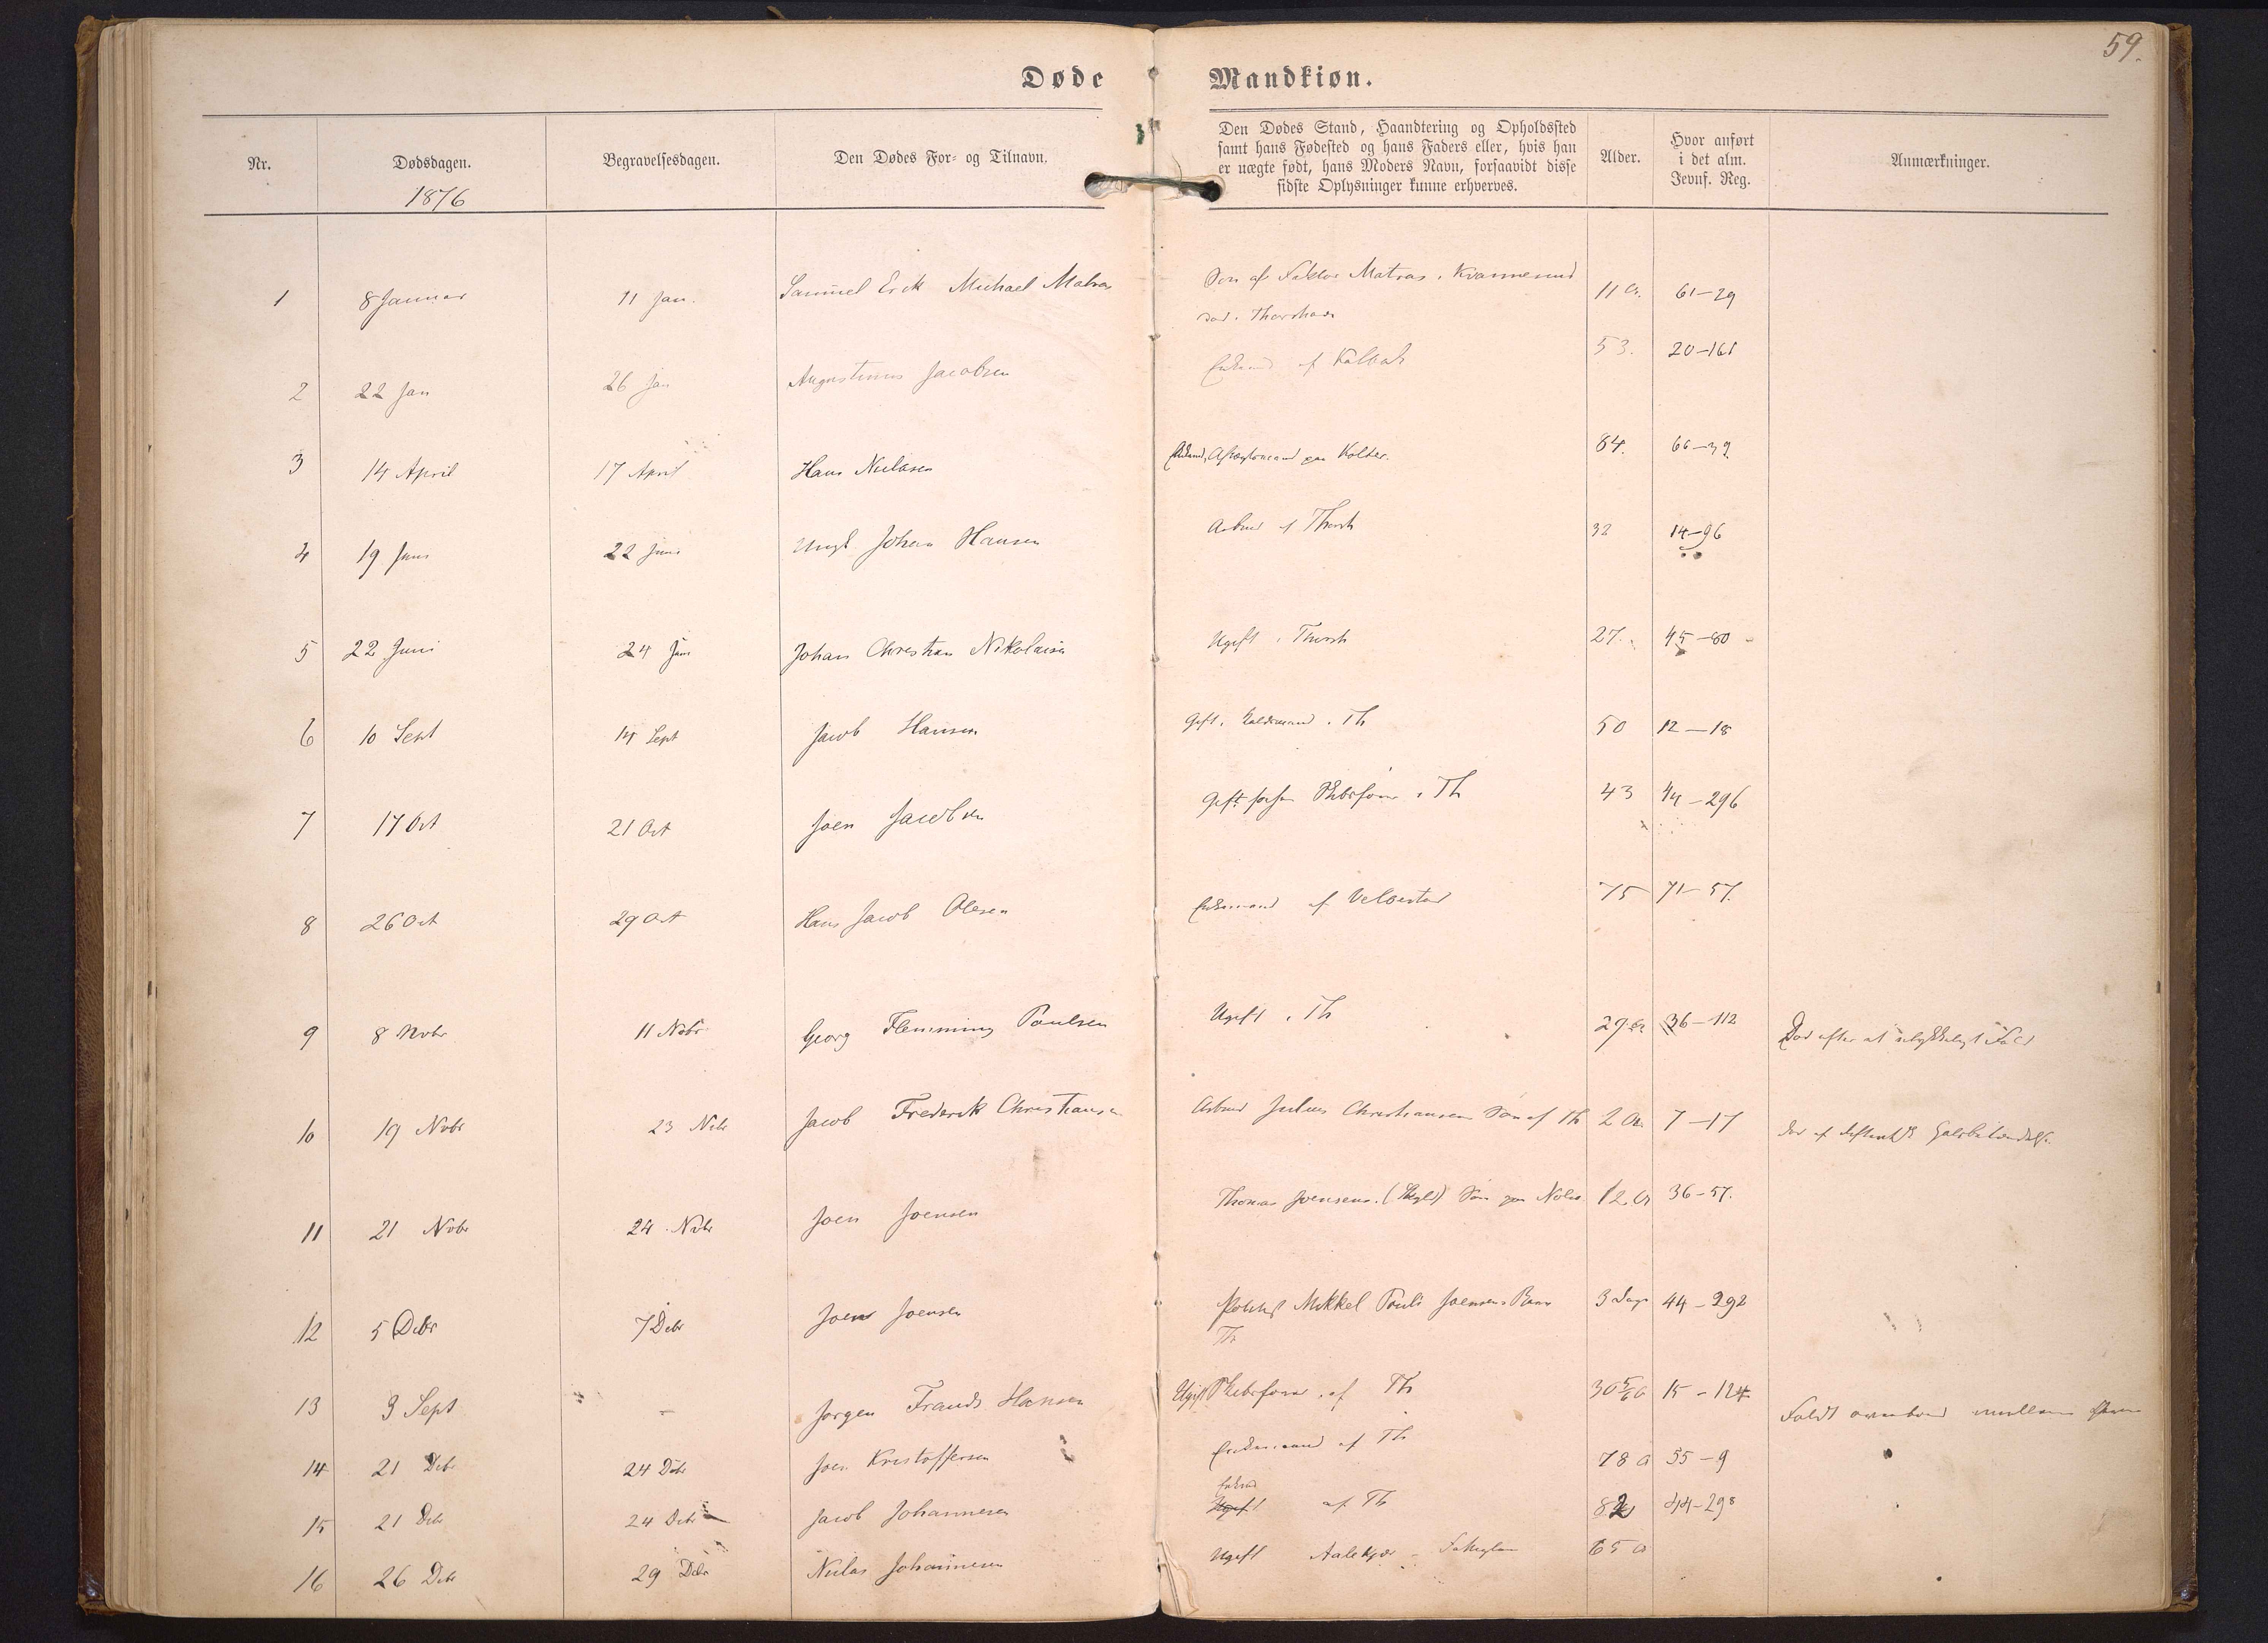 59.
Døde Mandkiøn.
Nr. Dødsdagen. Begravelsesdagen. Den Dødes For- og Tilnavn. Den Dødes Stand, Haandtering og Opholdssted samt hans Fødested og hans Faders eller, hvis han er uægte født, hans Moders Navn, forsaavidt disse sidste Oplysninger kunne erhverves. Alder. Hvor anført i det alm. Jevnf. Reg. Anmærkninger.
1876
1 8 Januar 11 Jan. Samuel Erik Michael Matras Søn af Faktor Matras i Kvannesund 11 61-29
død i Thorshavn
2 22 Jan 26 Jan Augustinus Jacobsen Enkemand af Kalbak 53. 20-161
3 14 April 17 April Hans Niclasen Aftægtsmand paa Kolter. 84. 66-39
4 19 Juni 22 Juni Johan Hansen af Thorsh 32 14-96
5 22 Juni 24 Juni Johan Christian Nikolaisen Ugift i Thorsh 27. 45-80
6 10 Sept 14 Sept Jacob Hansen Gift. i Th 50 12-18
7 17 Oct 21 Oct Joen Jacobsen Gift i Th 43 44-296
8 26 Oct 29 Oct Hans Jacob Olesen Enkemand af Velbestad 75 71-57.
9 8 Nobr 11 Nobr Georg Flemming Poulsen Ugift i Th 29 36-112 Død efter et ulykkeligt Fald
10 19 Nobr 23 Nobr Jacob Frederik Christiansen Arbmd Julius Christiansen Søn af Th 2 7-17 Død af
11 21 Nobr 24 Nobr Joen Joensen Thomas Joensens. Søn paa Nolsø 12 36-57.
12 5 Debr 7 Debr Joen Joensen Mikkel Pouli Joensens Barn 3 Dage 44-292
Th
13 3 Sept - Jørgen Frands Hansen Ugift af Th 30 5/6 15-124 Faldt overbord mellem
14 21 Debr 24 Debr Joen Kristoffersen Enkemand af Th 78 55-9
15 21 Debr 24 Debr Jacob Johannesen Ugift af Th 82 44-298
16 26 Debr 29 Debr Niclas Johannesen Ugift 65